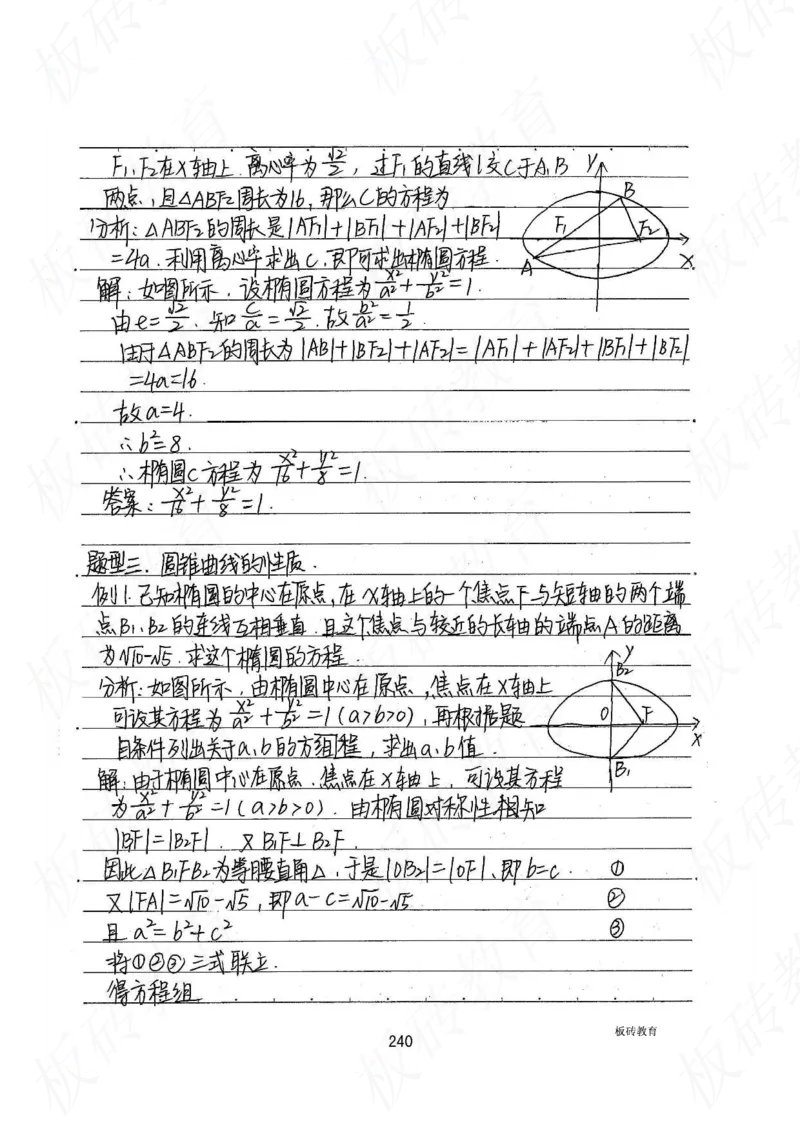 F₁、F₂在X轴上.离心率为√2/2,过F₁的直线l交C于A、B
两点,且△ABF₂周长为16,那么C的方程为
分析:△ABF₂的周长是|AF₁|+|BF₁|+|AF₂|+|BF₂|
=4a.利用离心率求出C.即可求出椭圆方程.
解:如图所示.设椭圆方程为x²/a²+y²/b²=1.
由e=√2/2.知c/a=√2/2.故b²/a²=1/2.
由于△ABF₂的周长为|AB|+|BF₂|+|AF₂|=|AF₁|+|AF₂|+|BF₁|+|BF₂|
=4a=16.
故a=4.
∴b²=8.
∴椭圆C方程为x²/16+y²/8=1.
答案:x²/16+y²/8=1.
y
B
F₁
F₂
A
X
题型三.圆锥曲线的性质.
例1.已知椭圆的中心在原点,在X轴上的一个焦点F与短轴的两个端
点B₁、B₂的连线互相垂直.且这个焦点与较近的长轴的端点A的距离
为√10-√5.求这个椭圆的方程.
分析:如图所示,由椭圆中心在原点,焦点在X轴上
可设其方程为x²/a²+y²/b²=1(a>b>0),再根据题
目条件列出关于a,b的方组程,求出a,b值.
解:由于椭圆中心在原点.焦点在X轴上,可设其方程
为x²/a²+y²/b²=1(a>b>0).由椭圆对称性相知
|BF|=|B₂F|.又B₁F⊥B₂F.
因此△B₁FB₂为等腰直角△,于是|OB₂|=|OF|、即b=c. ①
又|FA|=√10-√5,即a-c=√10-√5. ②
且a²=b²+c² ③
将①②③三式联立.
得方程组
y
B₂
O
F
X
B₁
240
板砖教育
板砖教育